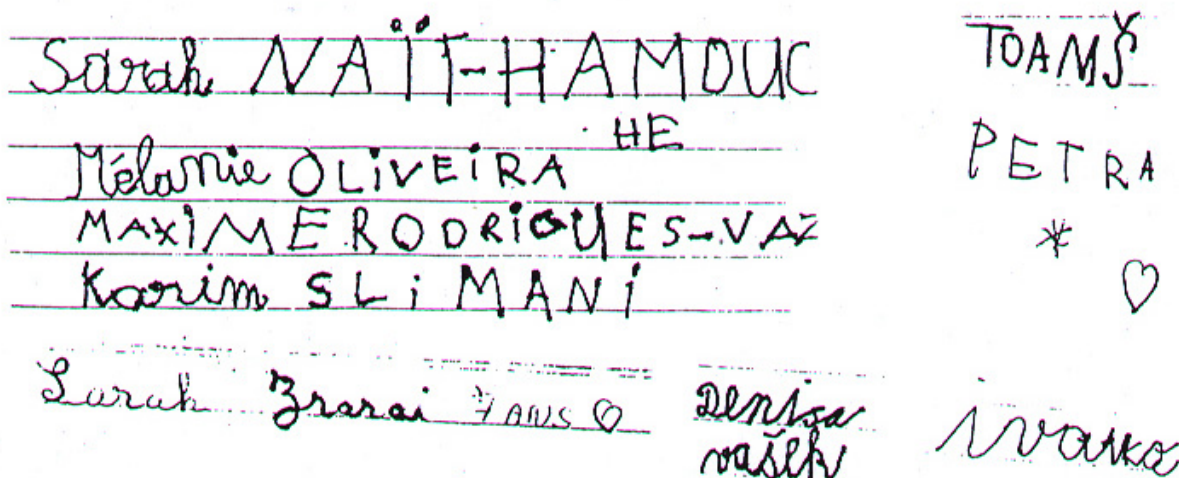 Sarah NAÏT-HAMOUC
HE
Mélanie OLIVEIRA
MAXIME RODRIGUES-VAZ
Karim SLIMANI
TOAMŠ
PETRA
Sarah Zrarai 7 ANS
Denisa
vašek
ivanka